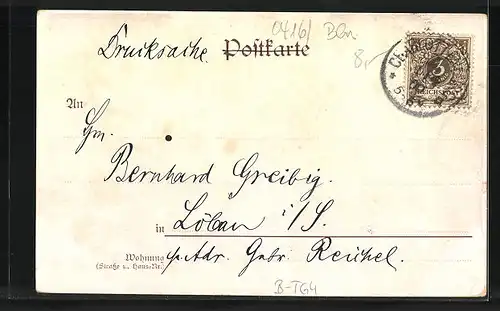 0416/ BGn
Drucksache Postkarte 8,-
3
REICHSPOST
An
Hm.
Bernhard Greibig.
in Löbau i/S.
Wohnung p. Adr. Gebr. Reichel.
(Straße u. Haus-Nr.)
B-TG4